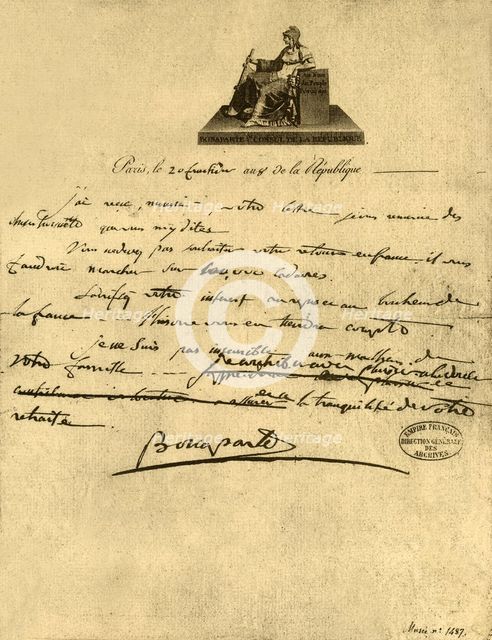 Au Nom
du Peuple
Français
BONAPARTE 1er CONSUL DE LA REPUBLIQUE
Paris, le 20 fructidor an 8 de la République
j'ai reçu, monsieur votre lettre je vous remercie des
choses honnêtes que vous m'y dites
Vous ne devez pas souhaiter votre retour en france. il vous
faudroit marcher sur 100,000 cadavres.
Sacrifiez votre interest au repos et au bonheur de
la france l'histoire vous en tiendra compte
je ne suis pas insensible aux malheurs de
votre famille
et a la tranquilité de votre
retraite
Bonaparte
EMPIRE FRANÇAIS
DIRECTION GÉNÉRALE
DES
ARCHIVES.
Musée n° 1487.
Heritage images
C